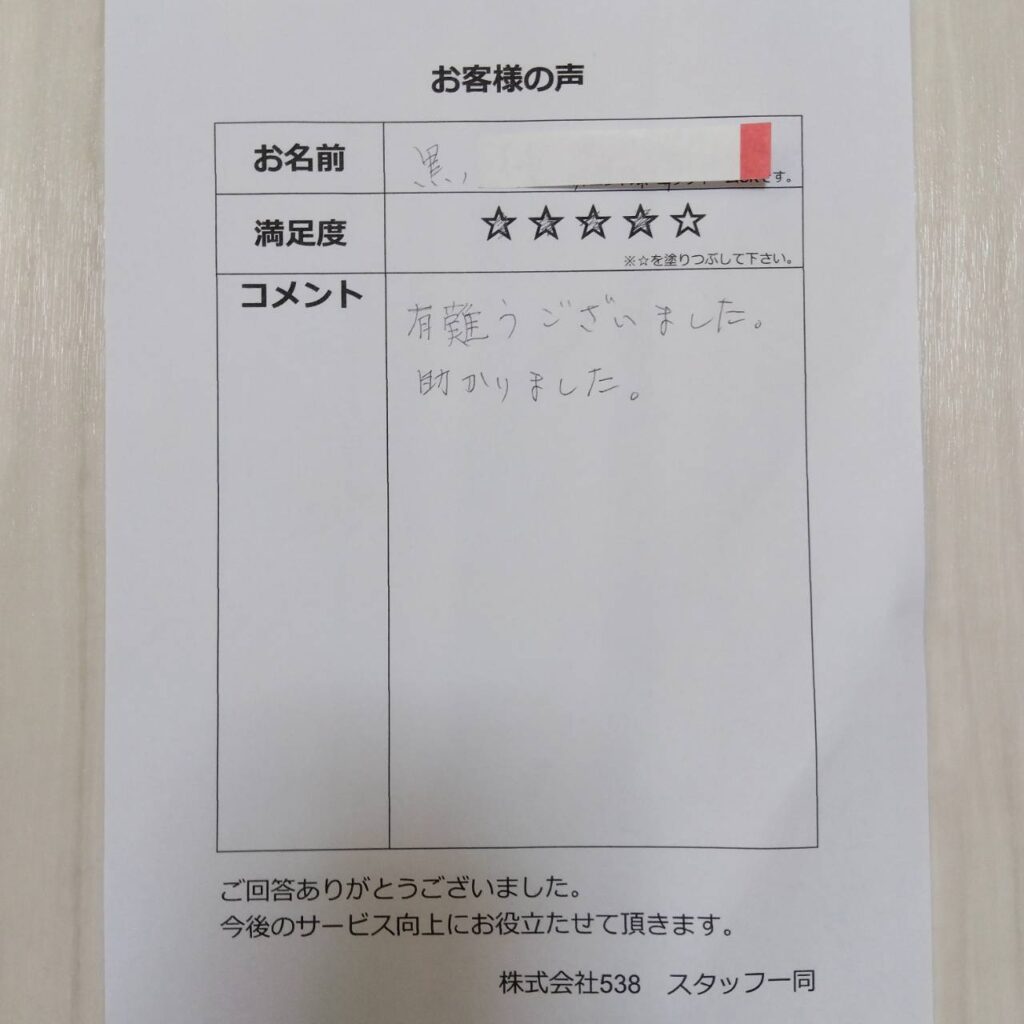 お客様の声
お名前
黒
です。
満足度
☆☆☆☆☆
※☆を塗りつぶして下さい。
コメント
有難うございました。
助かりました。
ご回答ありがとうございました。
今後のサービス向上にお役立たせて頂きます。
株式会社538 スタッフ一同